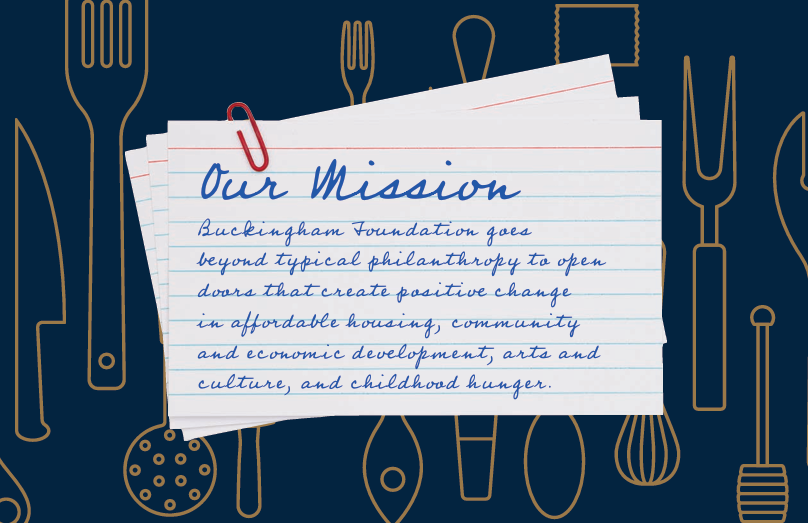 Our Mission
Buckingham Foundation goes
beyond typical philanthropy to open
doors that create positive change
in affordable housing, community
and economic development, arts and
culture, and childhood hunger.